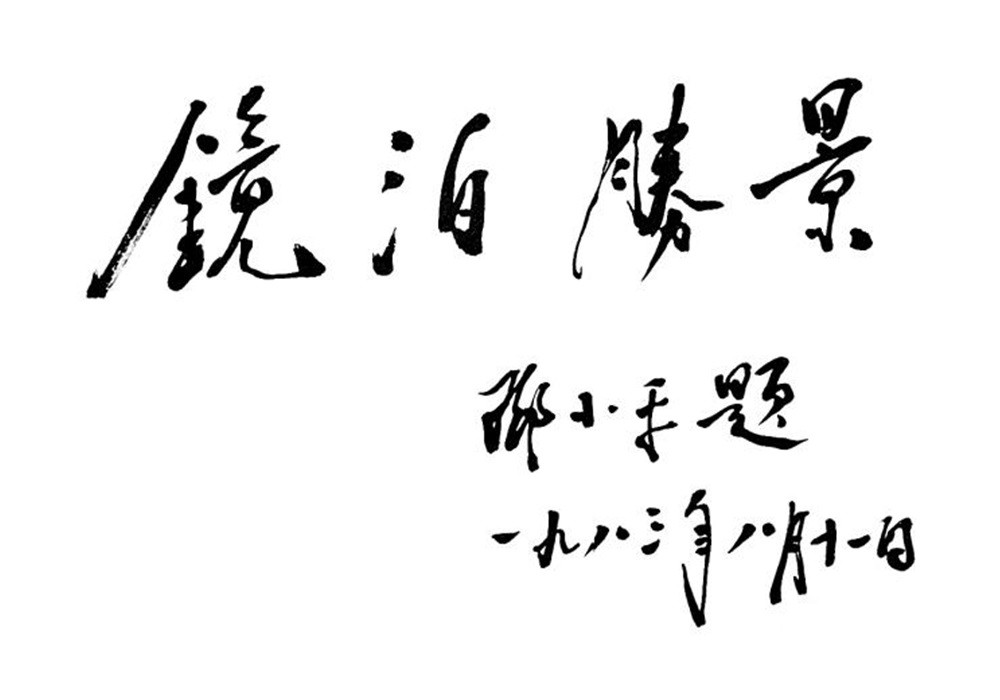 镜泊勝景
邓小平题
一九八三年八月十一日